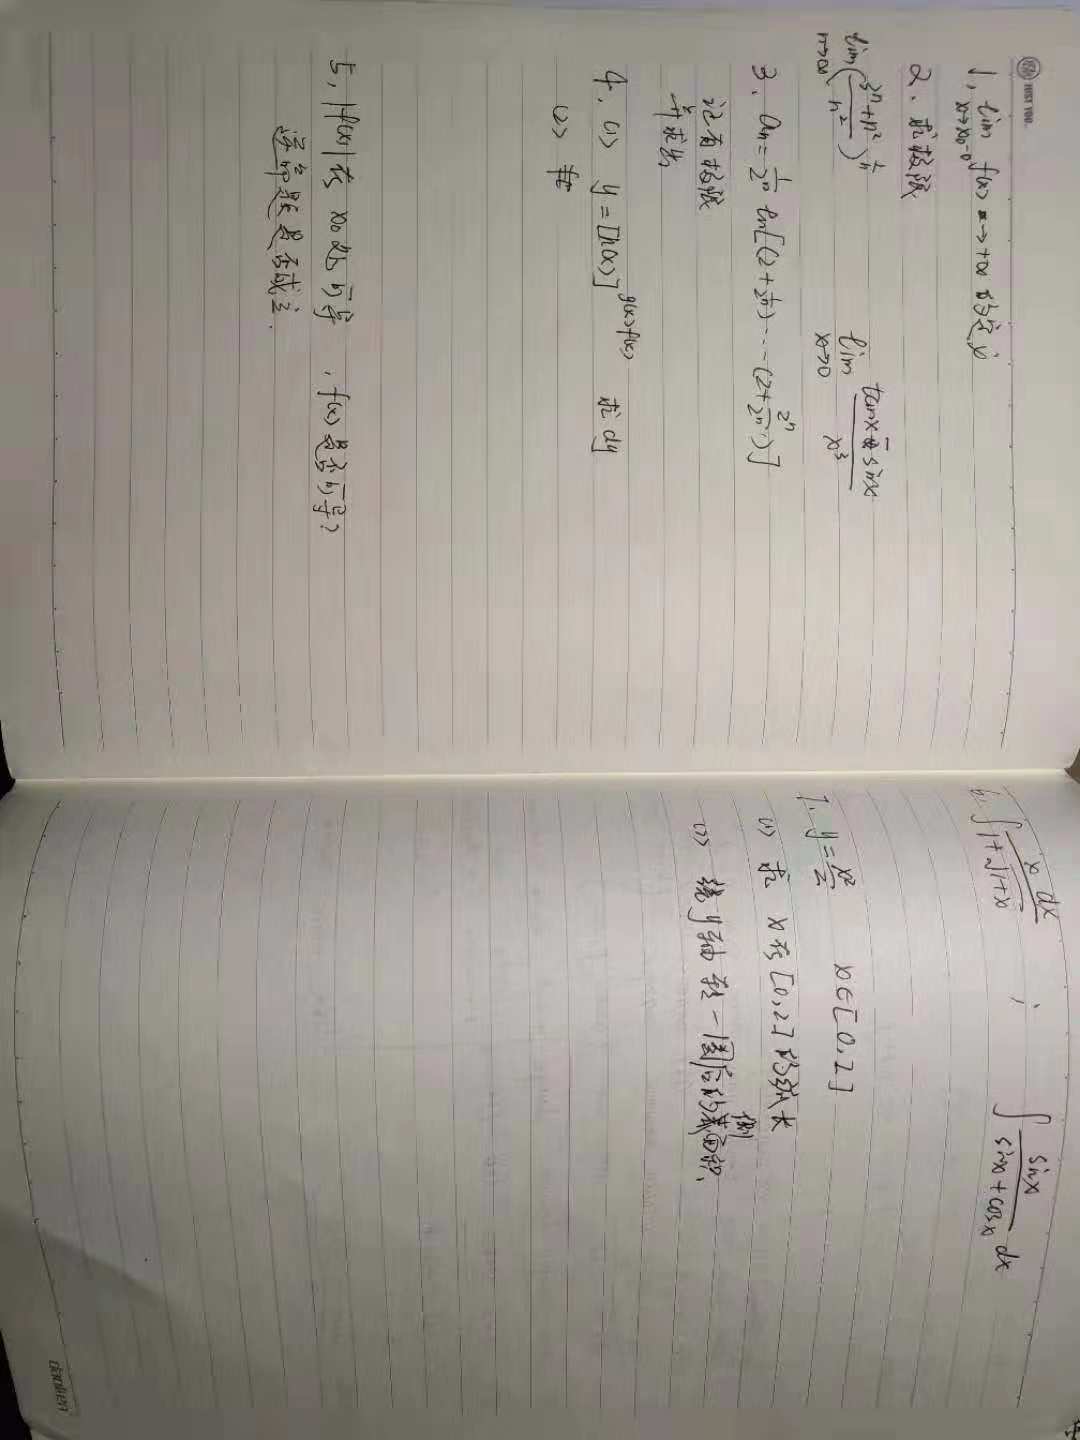 1. lim x→x₀-0 f(x) → +∞ 的定义
2. 求极限
lim n→∞ ((3ⁿ+n²)/n²)^(1/n)   lim x→0 (tanx - sinx)/x³
3. aₙ = 1/2ⁿ ln[(2+1/2ⁿ)···(2+2ⁿ/2ⁿ)]
证有极限
并求出
4. (1) y=[h(x)]^(g(x)f(x)) 求 dy
(2)
5. |f(x)| 在 x₀ 处可导, f(x) 是否可导?
逆命题是否成立.
6. ∫ x dx/(1+√(1+x)) ; ∫ sinx/(sinx+cosx) dx
7. y=x²/2   x∈[0,2]
(1) 求 x在[0,2]的弧长
(2) 绕y轴转一周后的侧面积.